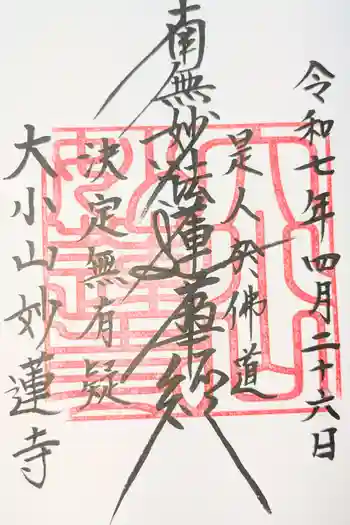 令和七年四月二十六日
是人於佛道
南無妙法蓮華経
決定無有疑
大小山妙蓮寺